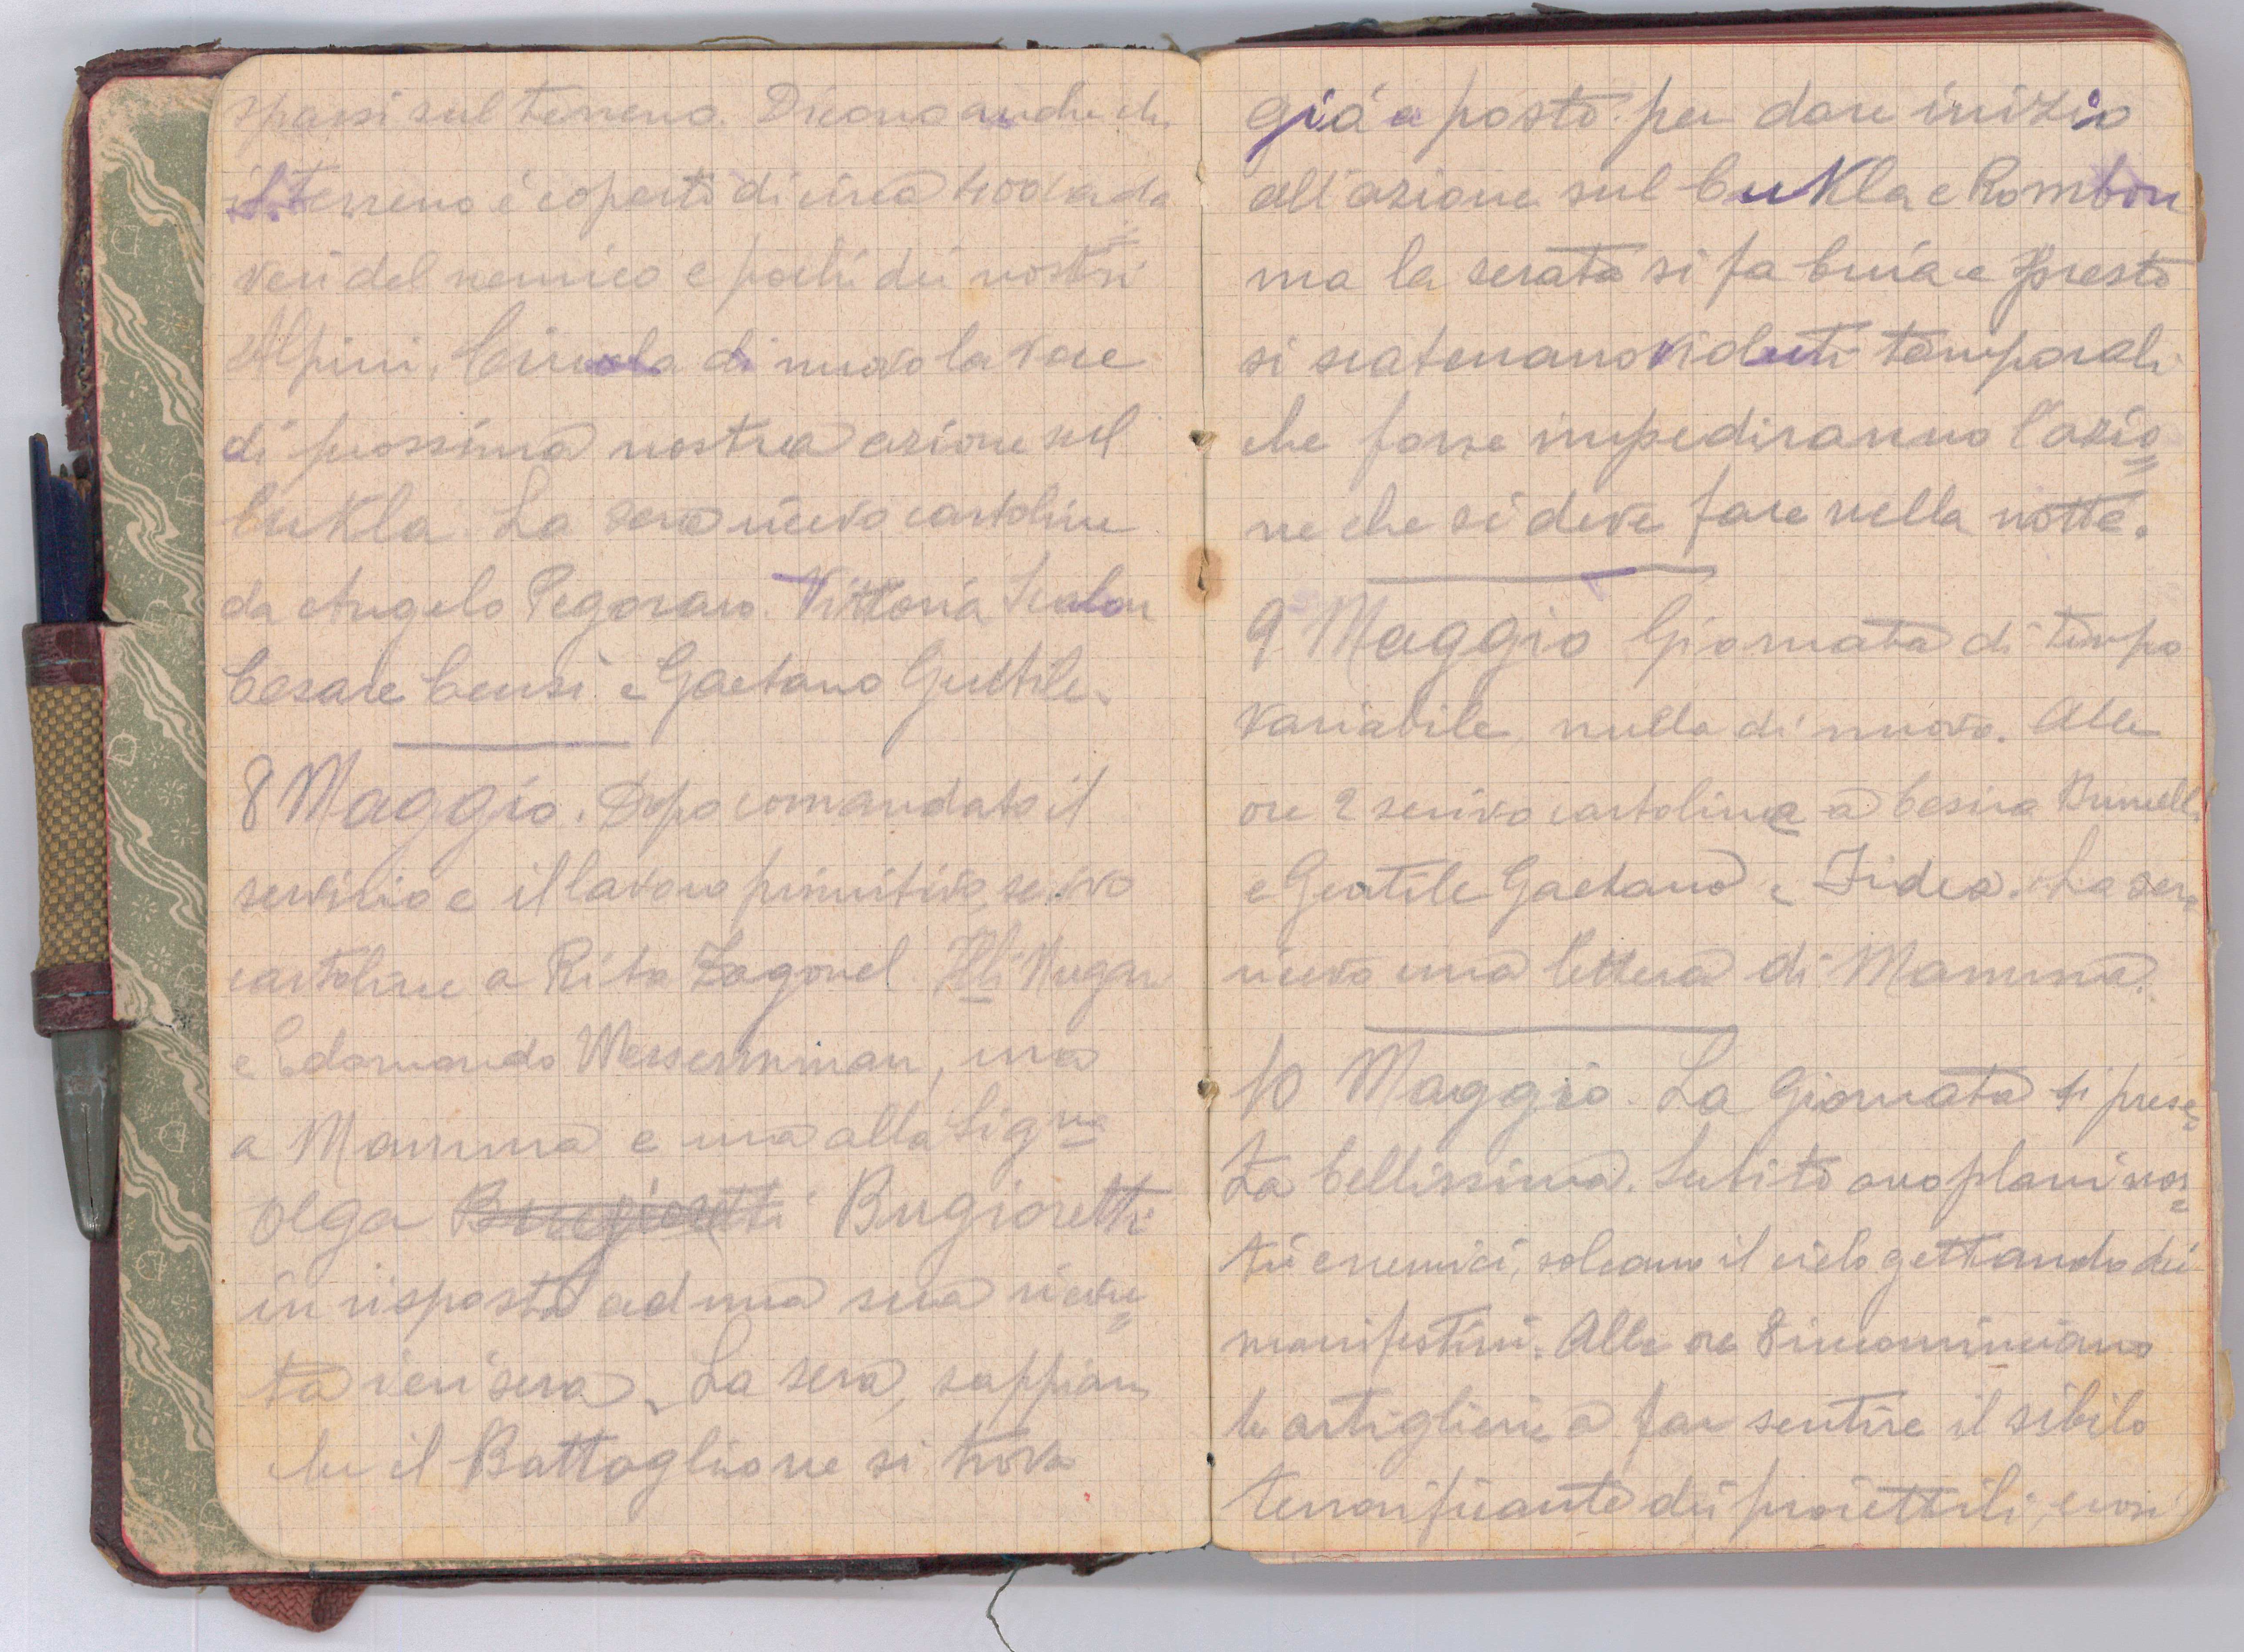 sparsi sul terreno. Dicono anche che
il terreno è coperto di circa 400 cada=
veri del nemico e pochi dei nostri
Alpini. Circola di nuovo la voce
di prossima nostra azione sul
Cukla. La sera ricevo cartoline
da Angelo Pegoraro. Vittoria Scalon
Cesare Censi e Gaetano Gentile.
8 Maggio. Dopo comandato il
servizio e il lavoro primitivo, scrivo
cartoline a Rita Zagonel. Flli
e Edomondo Wessermman, una
a Mamma e una alla Sigra
Olga Bugioretti Bugioretti
in risposta ad una sua ricevu=
ta ieri sera. La sera, sappiamo
che il Battaglione si trova
già a posto per dare inizio
all'azione sul Cukla e Rombon
ma la serata si fa buia e presto
si scatenano violenti temporali
che forse impediranno l'azio=
ne che si deve fare nella notte.
9 Maggio Giornata di tempo
variabile, nulla di nuovo. Alle
ore 2 scrivo cartoline a Cesira
e Gentile Gaetano e Fidea. La sera
ricevo una lettera di Mamma.
10 Maggio. La Giornata si prese=
ta bellissima. Subito areoplani nos=
tri e nemici, solcano il cielo gettando dei
manifestini. Alle ore 8 incominciano
le artiglierie a far sentire il sibilo
terrorificante dei proiettili, così